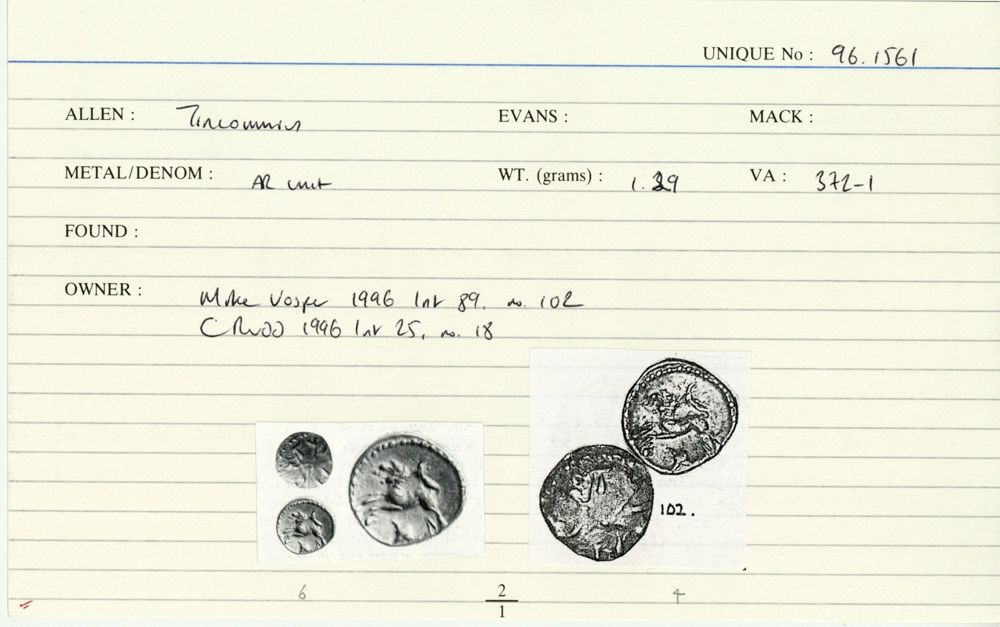 UNIQUE No : 96.1561
ALLEN : Tincommius EVANS : MACK :
METAL/DENOM : AR unit WT. (grams) : 1.29 VA : 372-1
FOUND :
OWNER : Mike Vosper 1996 list 89, no. 102
C Rudd 1996 list 25, no. 18
102.
6 2 4
1